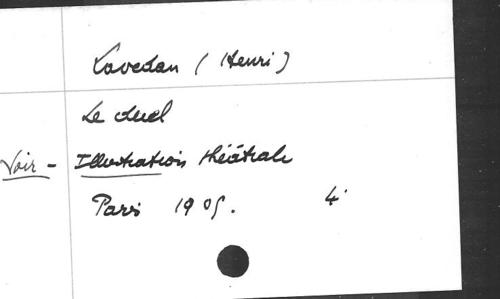 Lavedan (Henri)
Le duel
Voir - Illustration théâtrale
Paris 1905. 4°